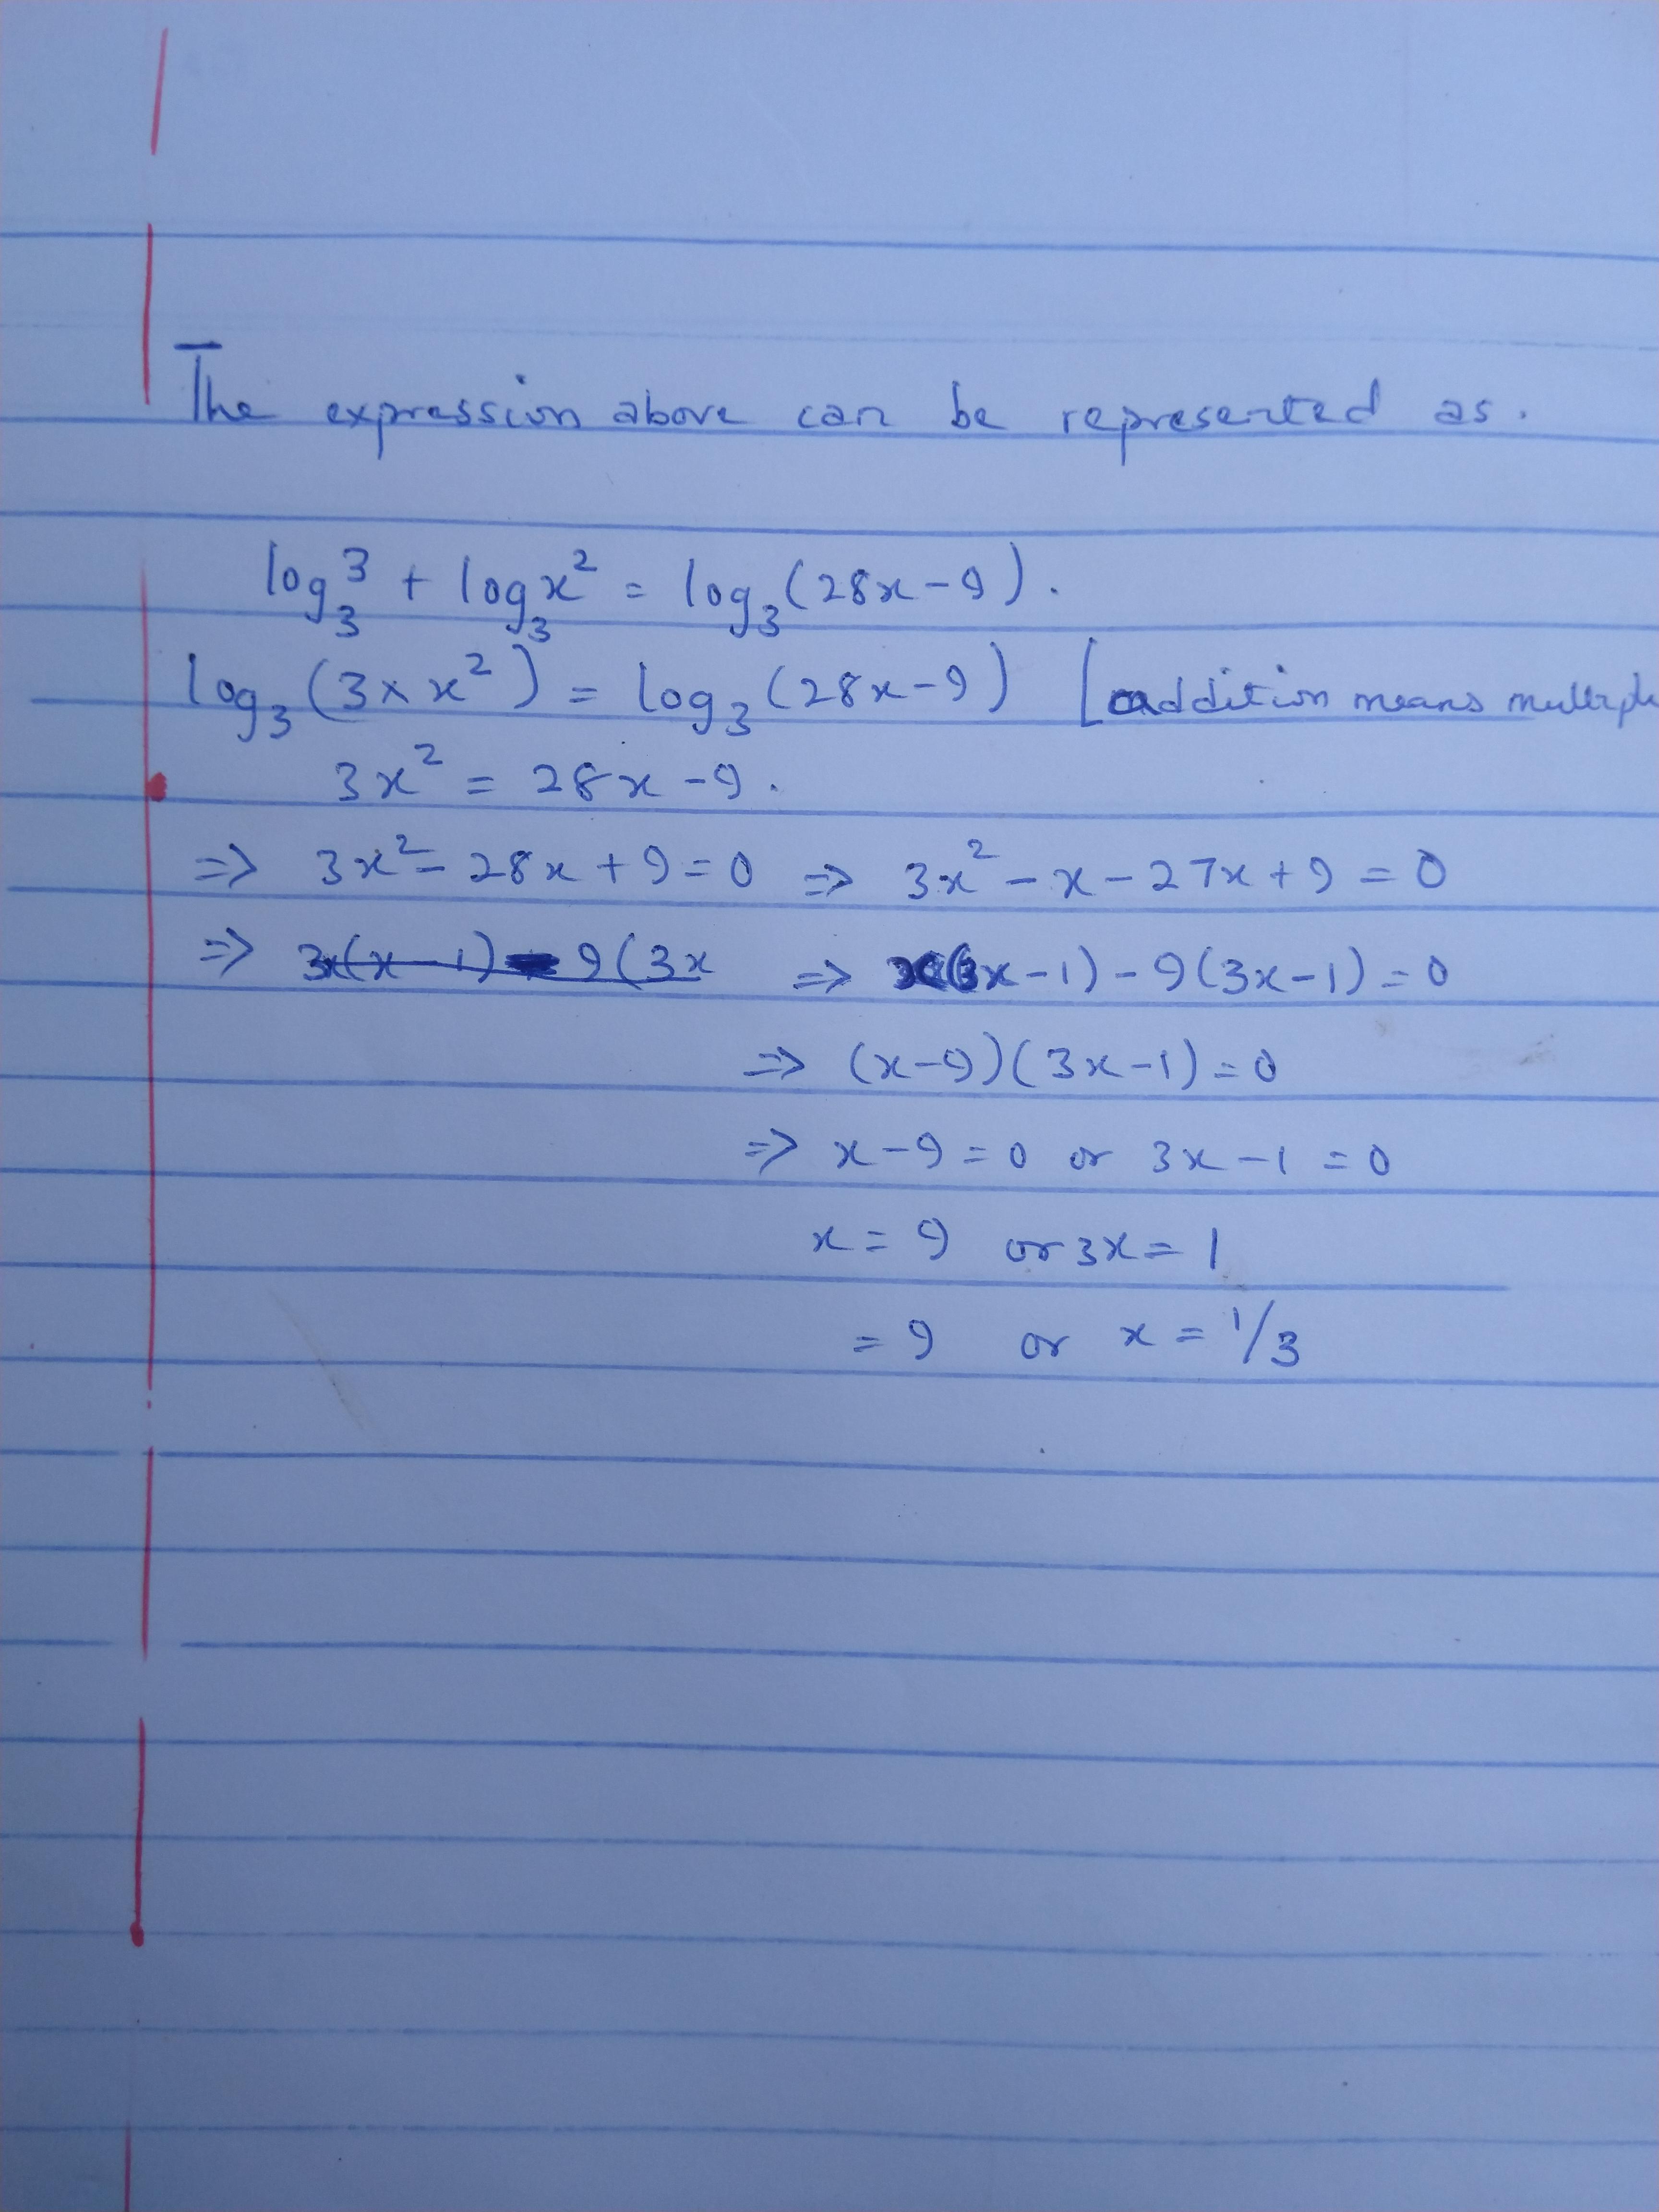 The expression above can be represented as.
log₃3 + log₃x² = log₃(28x-9).
log₃(3×x²) = log₃(28x-9) [addition means
3x² = 28x-9.
=> 3x²-28x+9=0 => 3x²-x-27x+9=0
=> 3x(x-1)-9(3x => x(3x-1)-9(3x-1)=0
=> (x-9)(3x-1)=0
=> x-9=0 or 3x-1=0
x=9 or 3x=1
=9 or x=1/3